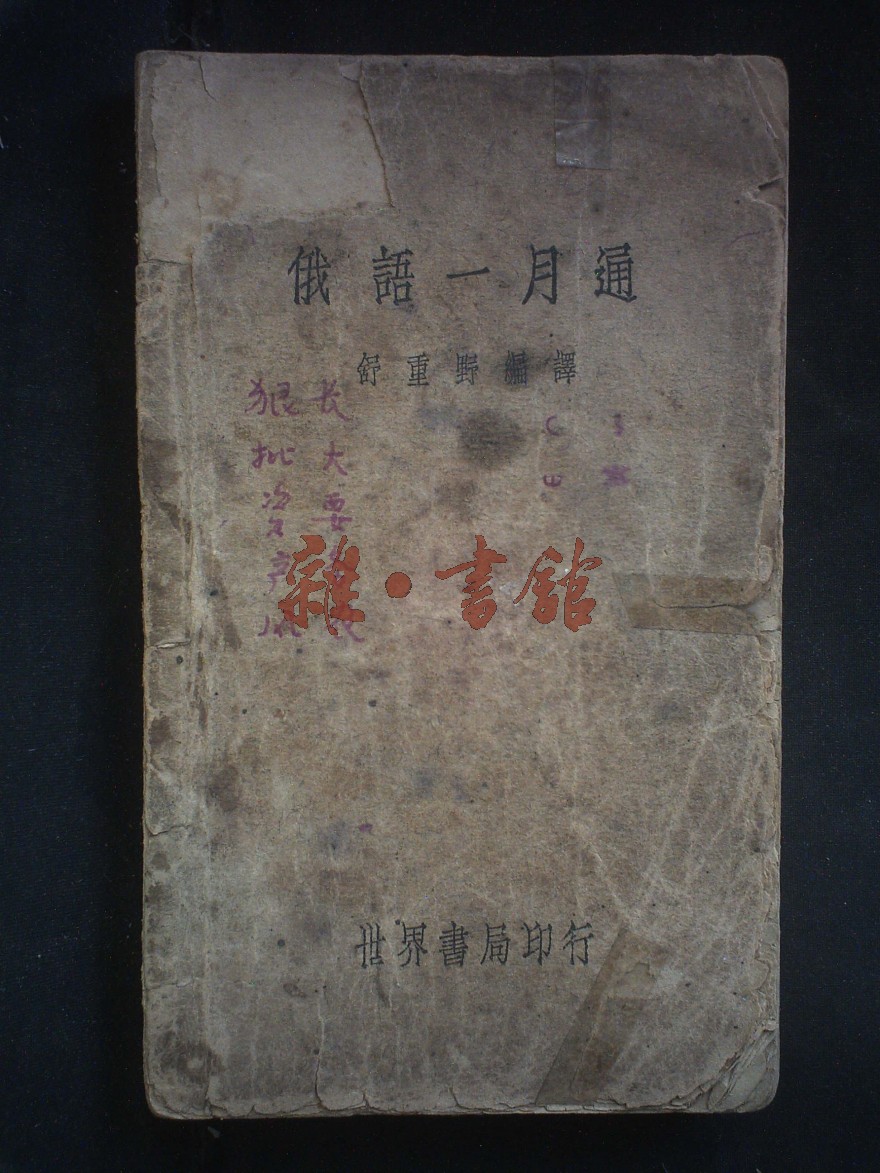 俄語一月通
舒重野編譯
长大要
狠批资产
雜·書館
世界書局印行